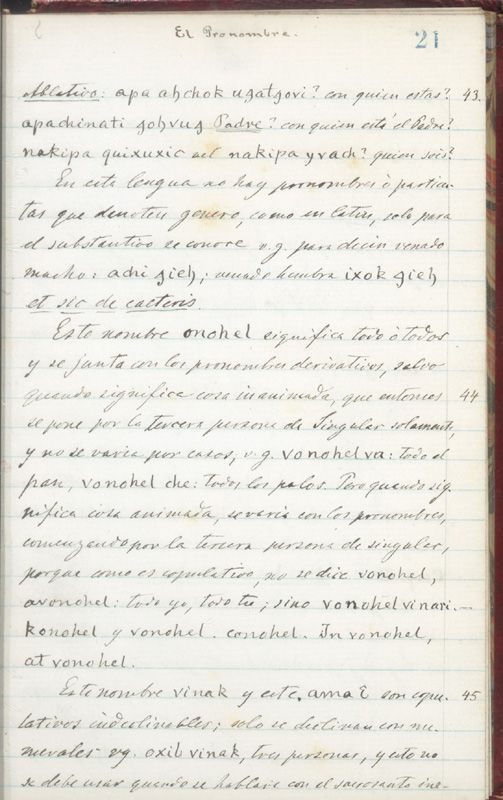 El Pronombre.
21
Ablativo: apa ahchok ugatgovi? con quien estas? 43.
apachinati gohvug Padre? con quien está el Padre?
nakipa quixuxic vel nakipa yvach? quien sois?
En esta lengua no hay pronombres ò particu-
las que denoten genero, como en latin, solo para
el substantivo se conoce v.g. para decir venado
macho: achi gieh; venado hembra ixok gieh
et sic de caeteris.
Este nombre onohel significa todo ò todos
y se junta con los pronombres derivativos, salvo
quando significa cosa inanimada, que entonces 44
se pone por la tercera persona de Singular solamente,
y no se varia por casos, v.g. vonohel va: todo el
pan, vonohel che: todos los palos. Pero quando sig-
nifica cosa animada, se varia con los pronombres,
comenzando por la tercera persona de singular,
porque como es copulativo, no se dice vonohel,
avonohel: todo yo, todo tu; sino vonohel vinak.—
konohel y vonohel. conohel. In vonohel,
at vonohel.
Este nombre vinak y este, amaî son copu- 45
lativos indeclinables; solo se declinan con nu-
merales vg. oxib vinak, tres personas, y esto no
se debe usar quando se hablare con el sacrosanto ine-